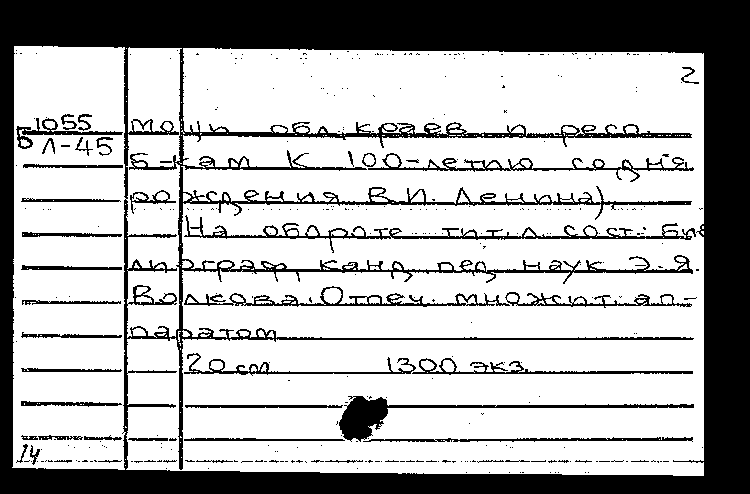 2
Б 1055
Л-45
мощь обл, краев и респ.
б-кам К 100-летию со дня
рождения В.И. Ленина).
На обороте тит. л. сост.: Биб
лиограф, канд. пед. наук Э.Я.
Волкова. Отпеч. множит. ап-
паратом
20 см 1300 экз.
14